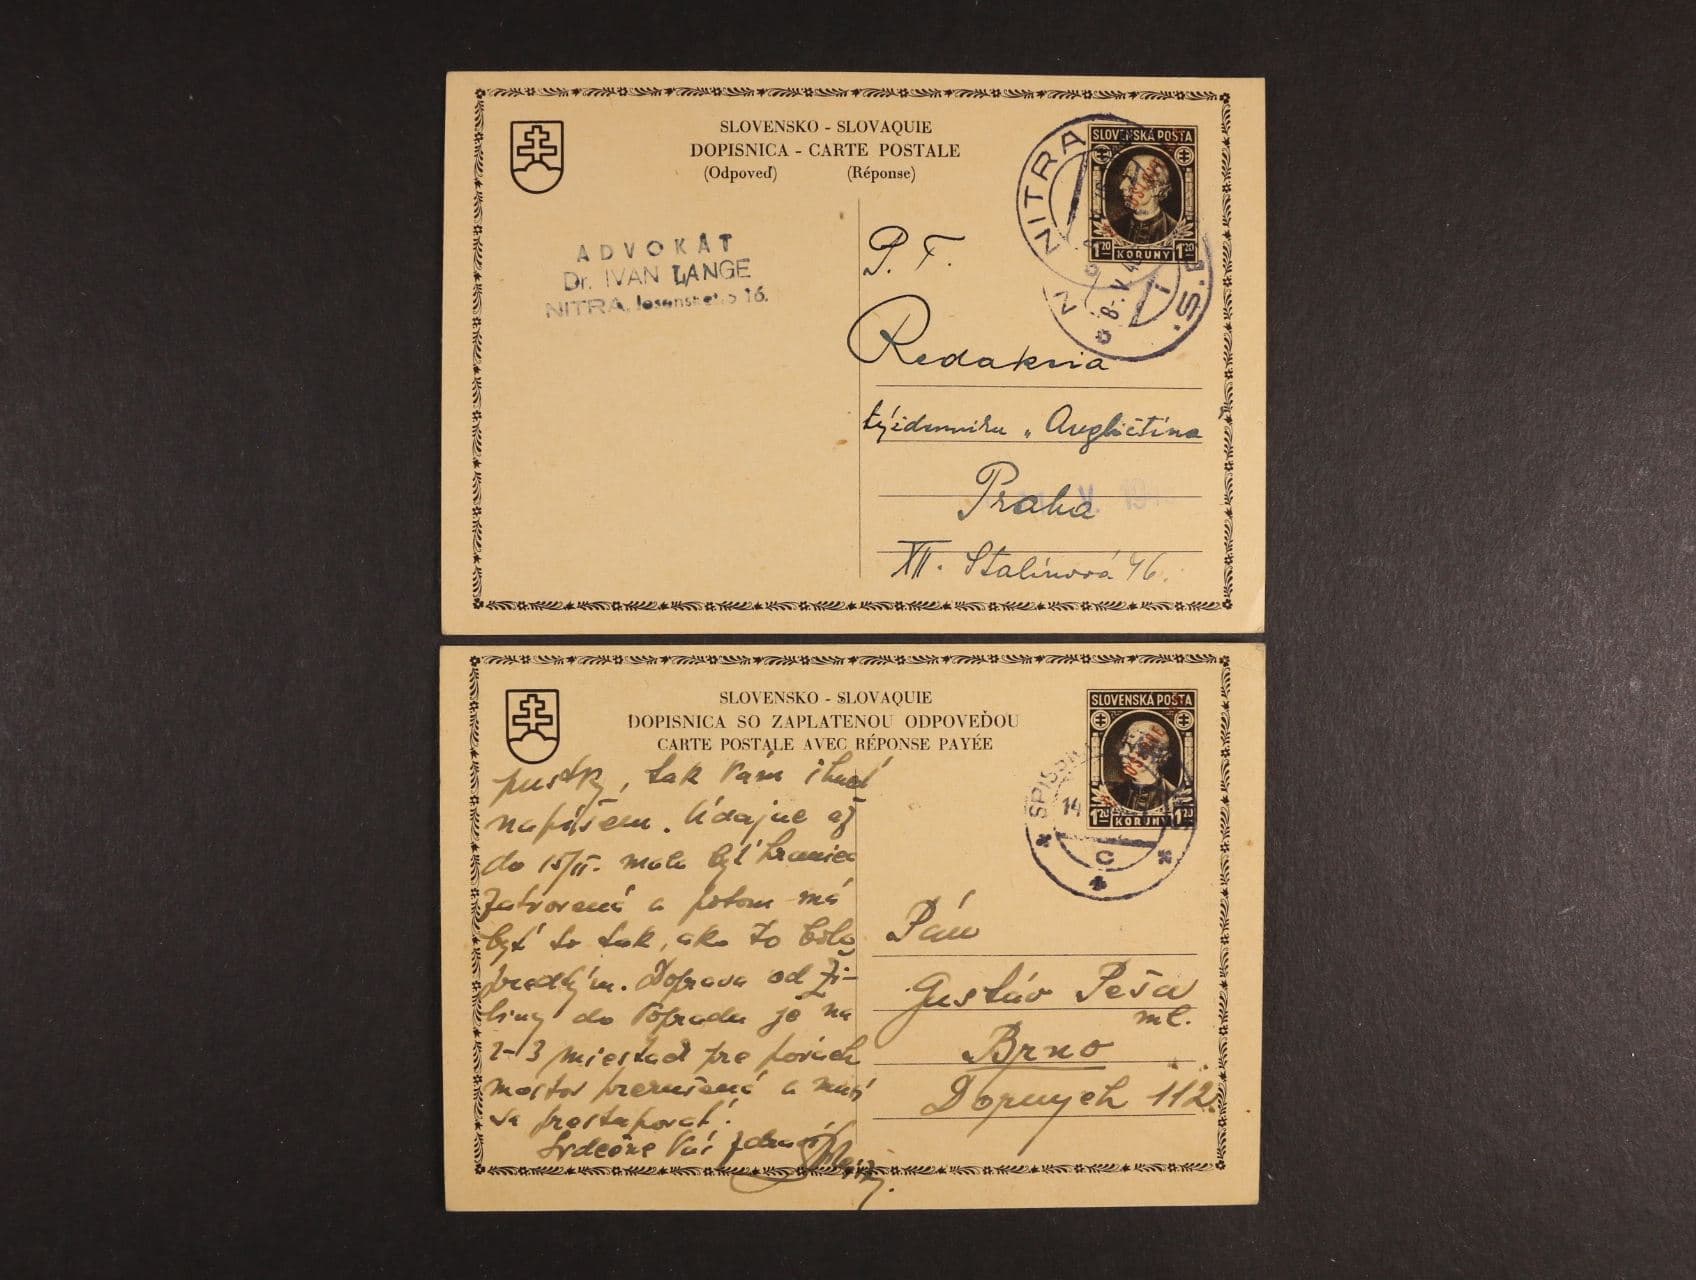 SLOVENSKO - SLOVAQUIE
DOPISNICA - CARTE POSTALE
(Odpoveď) (Réponse)
SLOVENSKÁ POŠTA
1 20 KORUNY 1 20
NITRA 1
8.-V.
ADVOKÁT
Dr. IVAN LANGE
NITRA, 16.
P. T.
Redakcia
týždenníku „Angličtina
Praha
XII. Stalinová 46.
SLOVENSKO - SLOVAQUIE
DOPISNICA SO ZAPLATENOU ODPOVEĎOU
CARTE POSTALE AVEC RÉPONSE PAYÉE
SLOVENSKÁ POŠTA
1 20 KORUNY 1 20
14
c
pustky, tak Vám ihneď
napíšem. Údajne až
do 15/II. mala byť hranica
zatvorená a potom má
byť to tak, ako to bolo
predtým. Doprava od Ži-
liny do Popradu je na
2-3 miestach pre
mostov prerušená a musí
sa prestupovať.
Srdečne Vás zdraví
Pán
Gustáv Peša
ml.
Brno
Dornych 112.